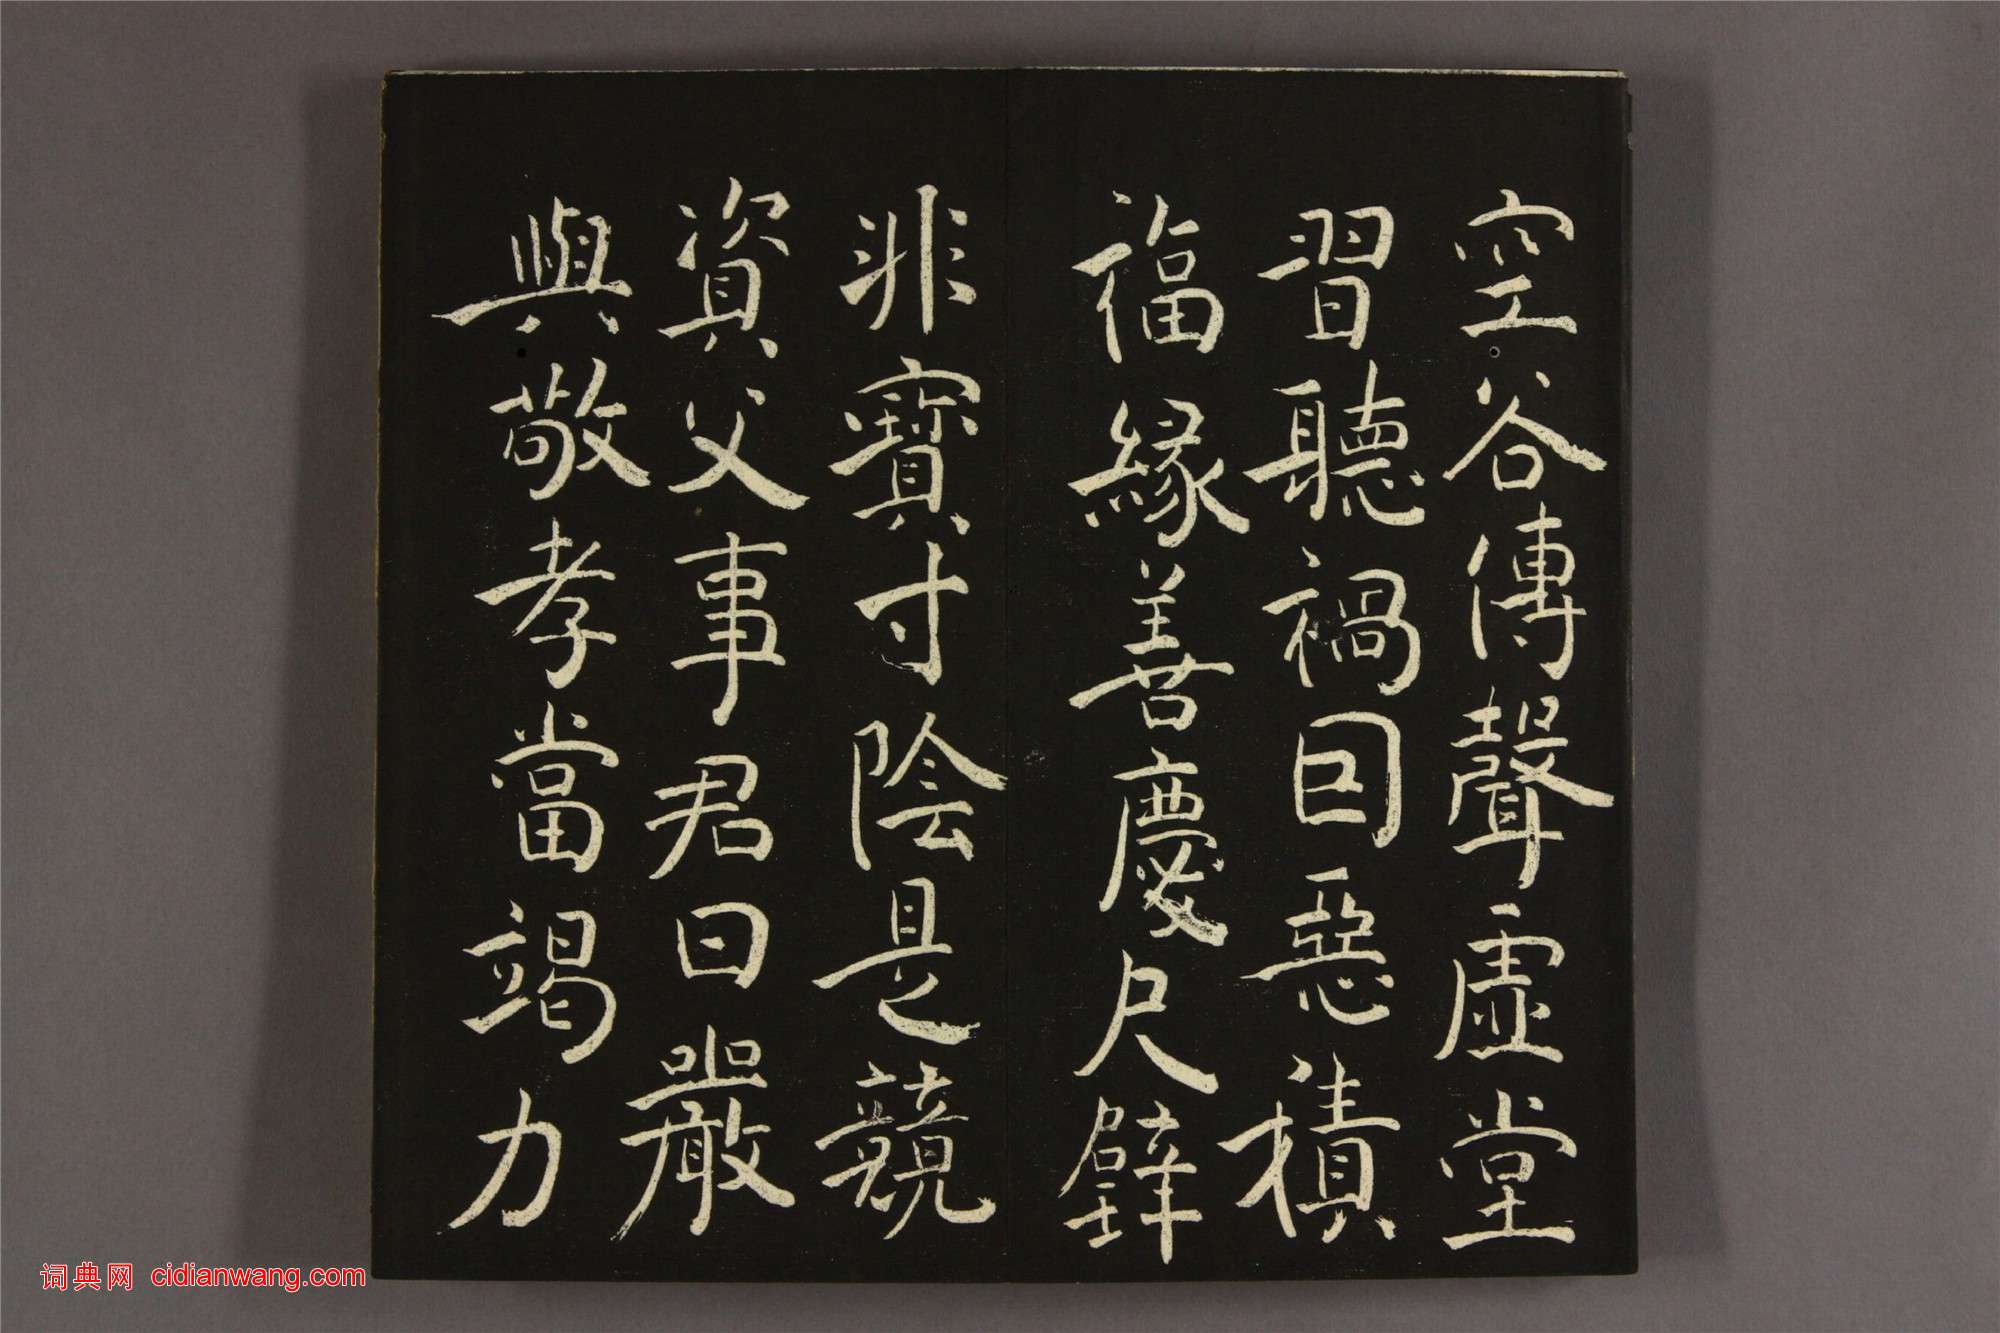 空谷傳聲虛堂
習聽禍因惡積
福緣善慶尺璧
非寶寸陰是競
資父事君曰嚴
與敬孝當竭力
词典网 cidianwang.com